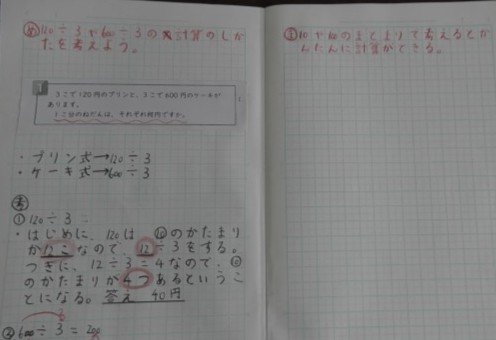 め 120÷3や600÷3の計算のしか
たを考えよう。
1
3こで120円のプリンと、3こで600円のケーキが
あります。
1こ分のねだんは、それぞれ何円ですか。
・プリン式→120÷3
・ケーキ式→600÷3
考
①120÷3
・はじめに、120は⑩のかたまり
が12こなので、12÷3をする。
つぎに、12÷3=4なので、⑩
のかたまりが4つあるというこ
とになる。答え 40円
②600÷3=200
ま 10や100のまとまりで考えるとか
んたんに計算ができる。